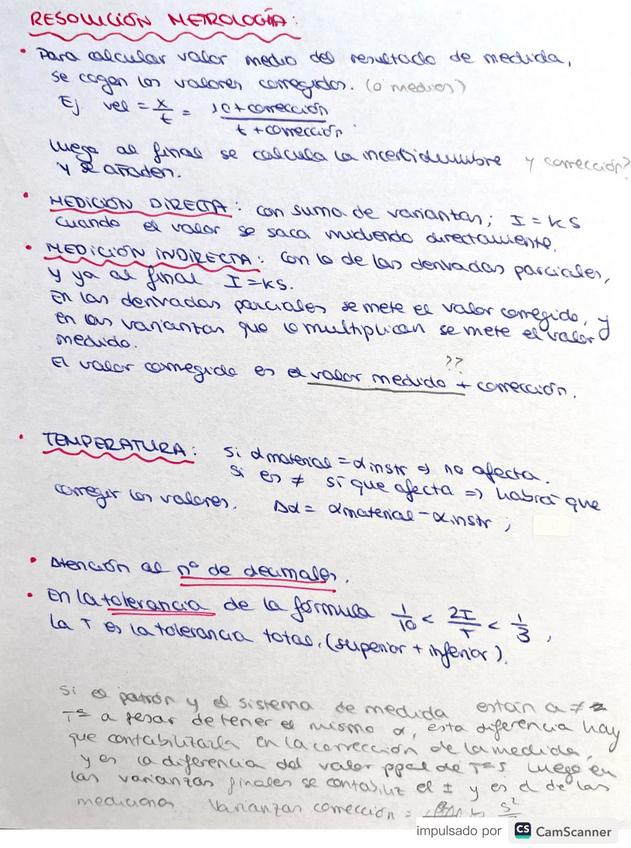 RESOLUCIÓN METROLOGÍA:
• Para calcular valor medio del resultado de medida,
se cogen los valores corregidos. (o medios)
Ej vel = x/t = x + corrección / t + corrección.
Luego al final se calcula la incertidumbre y corrección?
y se añaden.
• MEDICIÓN DIRECTA: con suma de varianzas; I = KS
cuando el valor se saca midiendo directamente.
• MEDICIÓN INDIRECTA: con lo de las derivadas parciales,
y ya al final I=KS.
En las derivadas parciales se mete el valor corregido, y
en las varianzas que lo multiplican se mete el valor
medido.
??
El valor corregido es el valor medido + corrección.
• TEMPERATURA: Si αmaterial = αinstr ⇒ no afecta.
Si es ≠ sí que afecta ⇒ habrá que
corregir los valores. Δα = αmaterial - αinstr ;
• Atención al nº de decimales.
• En la tolerancia de la fórmula 1/10 < 2I/T < 1/3,
la T es la tolerancia total. (superior + inferior).
Si el patrón y el sistema de medida están a ≠
Tª a pesar de tener el mismo α, esta diferencia hay
que contabilizarla en la corrección de la medida,
y es la diferencia del valor ppal de Tªs. Luego en
las varianzas finales se contabiliz el ± y es el de las
mediciones Varianzas corrección = s²
impulsado por CS CamScanner